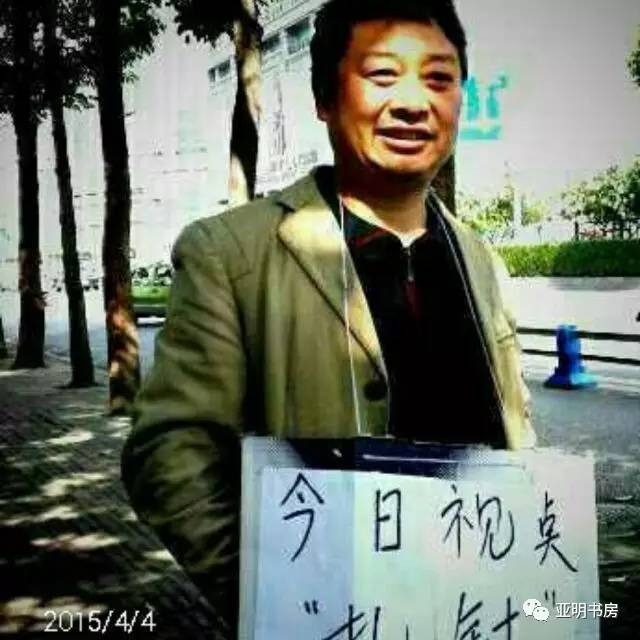 今日视点
2015/4/4
亚明书房